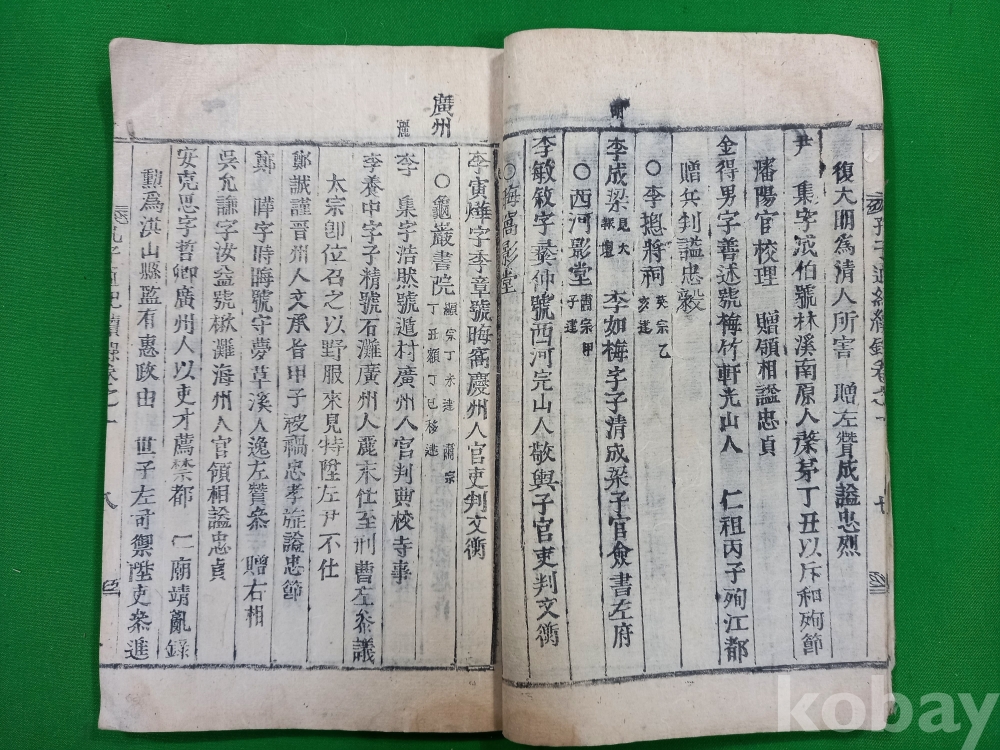 復大明爲清人所害 贈左贊成謚忠烈
尹 集字成伯號林溪南原人蔡茅丁丑以斥和殉節
瀋陽官校理 贈領相謚忠貞
金得男字善述號梅竹軒光山人 仁祖丙子殉江都
贈兵判謚忠毅
○李摠將祠 英宗乙亥建
李成梁 見大報壇 李如梅字子清成梁子官僉書左府
○西河影堂 肅宗甲子建
李敏敘字彛仲號西河完山人敬輿子官吏判文衡
○梅窩影堂
李寅燁字季章號晦窩慶州人官吏判文衡
廣州
○龜巖書院 顯宗丁未建 肅宗丁丑額丁巳移建
李 集字浩然號遁村廣州人官判典校寺事
李養中字子精號石灘廣州人麗末仕至刑曹左參議
太宗卽位召之以野服來見特陞左尹不仕
鄭誠謹晋州人文承旨甲子被禍忠孝旌謚忠節
鄭 曄字時晦號守夢草溪人逸左贊參 贈右相
吳允謙字汝益號楸灘海州人官領相謚忠貞
安克思字哲卿廣州人以吏才薦禁都 仁廟靖亂錄
勳爲洪山縣監有惠政由 世子左司禦陞吏參進
kobay